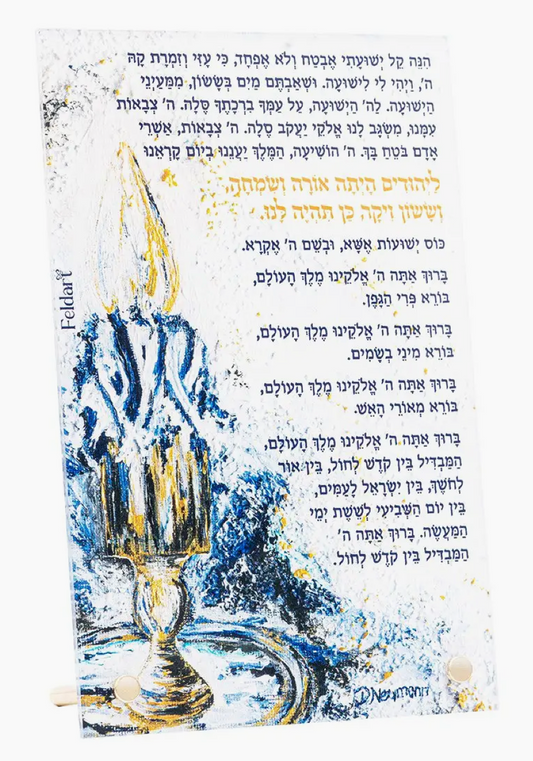 הִנֵּה קֵל יְשׁוּעָתִי אֶבְטַח וְלֹא אֶפְחָד, כִּי עָזִּי וְזִמְרָת קָהּ
ה', וַיְהִי לִי לִישׁוּעָה. וּשְׁאַבְתֶּם מַיִם בְּשָׂשׂוֹן, מִמַּעַיְנֵי
הַיְשׁוּעָה. לַה' הַיְשׁוּעָה, עַל עַמְּךָ בִרְכָתֶךָ סֶּלָה. ה' צְבָאוֹת
עִמָּנוּ, מִשְׂגָּב לָנוּ אֱלֹקֵי יַעֲקֹב סֶלָה. ה' צְבָאוֹת, אַשְׁרֵי
אָדָם בֹּטֵחַ בָּךְ. ה' הוֹשִׁיעָה, הַמֶּלֶךְ יַעֲנֵנוּ בְיוֹם קָרְאֵנוּ
לַיְּהוּדִים הָיְתָה אוֹרָה וְשִׂמְחָה,
וְשָׂשׂוֹן וִיקָר. כֵּן תִּהְיֶה לָנוּ.
כּוֹס יְשׁוּעוֹת אֶשָּׂא, וּבְשֵׁם ה' אֶקְרָא.
בָּרוּךְ אַתָּה ה' אֱלֹקֵינוּ מֶלֶךְ הָעוֹלָם,
בּוֹרֵא פְּרִי הַגֶּפֶן.
בָּרוּךְ אַתָּה ה' אֱלֹקֵינוּ מֶלֶךְ הָעוֹלָם,
בּוֹרֵא מִינֵי בְשָׂמִים.
בָּרוּךְ אַתָּה ה' אֱלֹקֵינוּ מֶלֶךְ הָעוֹלָם,
בּוֹרֵא מְאוֹרֵי הָאֵשׁ.
בָּרוּךְ אַתָּה ה' אֱלֹקֵינוּ מֶלֶךְ הָעוֹלָם,
הַמַּבְדִּיל בֵּין קֹדֶשׁ לְחוֹל, בֵּין אוֹר
לְחֹשֶׁךְ, בֵּין יִשְׂרָאֵל לָעַמִּים,
בֵּין יוֹם הַשְּׁבִיעִי לְשֵׁשֶׁת יְמֵי
הַמַּעֲשֶׂה. בָּרוּךְ אַתָּה ה'
הַמַּבְדִּיל בֵּין קֹדֶשׁ לְחוֹל.
Feldart